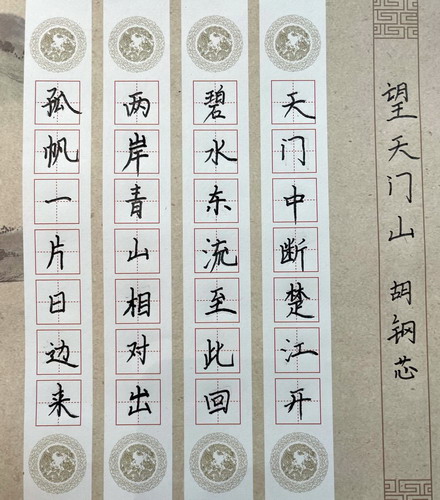 望天门山 胡钢芯
天门中断楚江开
碧水东流至此回
两岸青山相对出
孤帆一片日边来